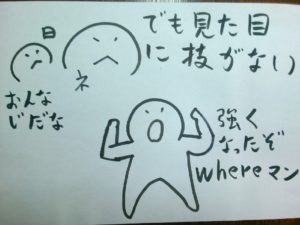 でも見た目
に技がない
日
ネ
おんな
じだな
強く
なったぞ
whereマン